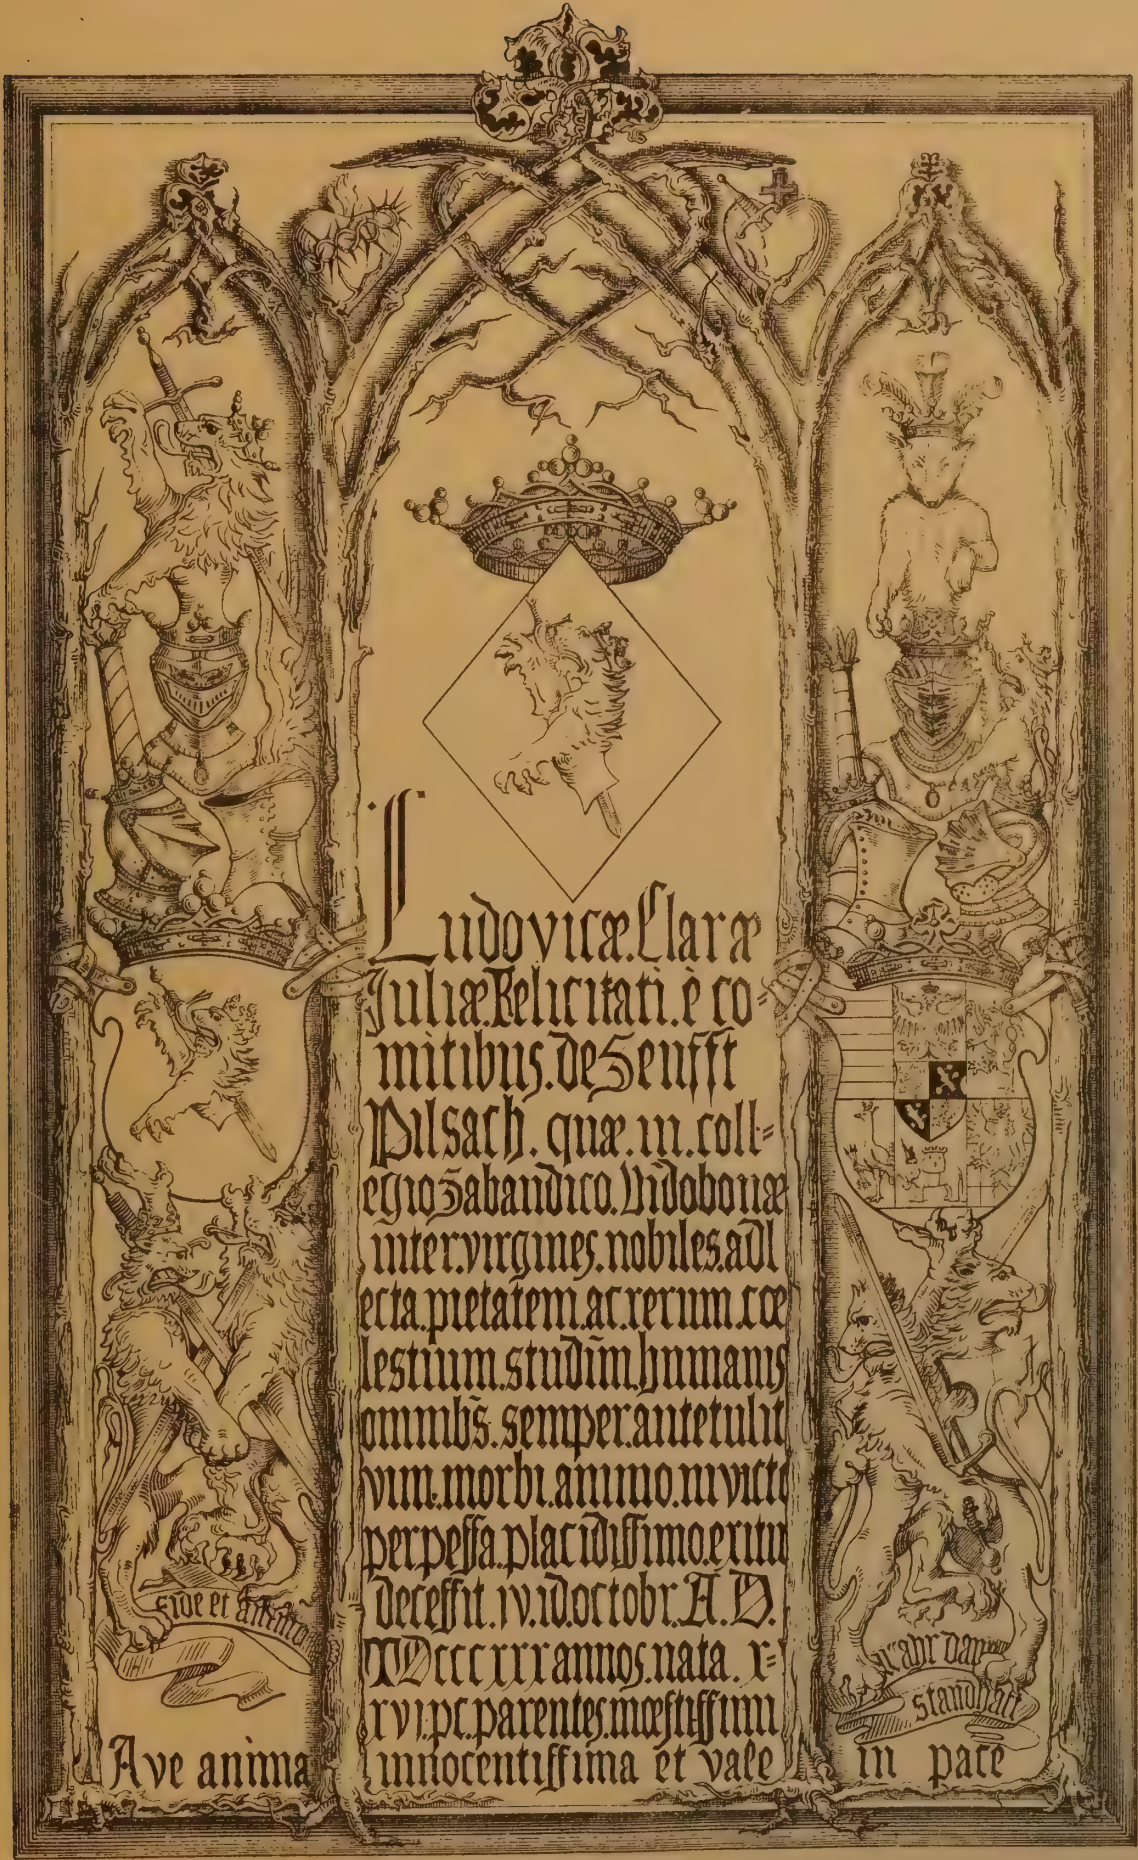 Ludovicæ. Claræ
Juliæ. Felicitati. è co=
mitibus. de Senfft
Pilsach. quæ. in. coll=
egio Sabaudico. Vīdobonæ
inter. virgines. nobiles. adl
ecta. pietatem. ac. rerum. cœ
lestium. studiūm. humanis
omnibs̄. semper. antetulit
vim. morbi. animo. invicto
perpeſſa. placidiſſimo. exitu
deceſſit. iv. id. octobr. A. D.
MDcccxxx annos. nata. x=
xvi. pc. parentes. mœſtiſſimi
Ave anima innocentiſſima et vale in pace
fide et animo
wahr dan
standhaft